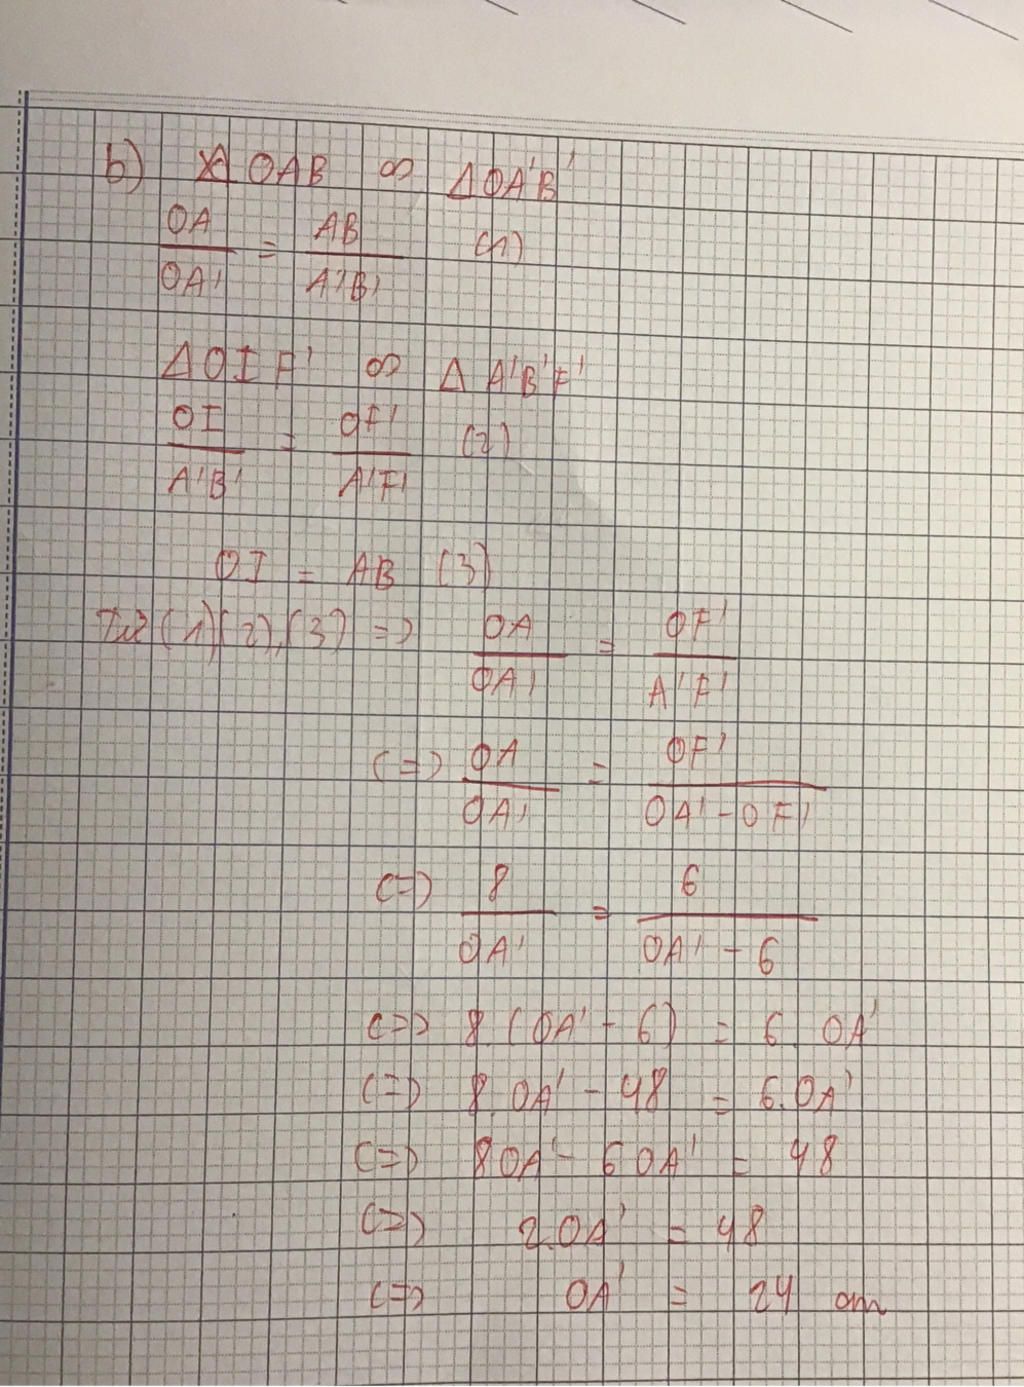 b) Δ OAB ∽ Δ OA'B'
OA/OA' = AB/A'B' (1)
Δ OIF' ∽ Δ A'B'F'
OI/A'B' = OF'/A'F' (2)
OI = AB (3)
Từ (1)(2),(3) => OA/OA' = OF'/A'F'
<=> OA/OA' = OF'/OA' - OF'
<=> 8/OA' = 6/OA' - 6
<=> 8.(OA' - 6) = 6. OA'
<=> 8.OA' - 48 = 6.OA'
<=> 8OA' - 6OA' = 48
<=> 2.OA' = 48
<=> OA' = 24 cm